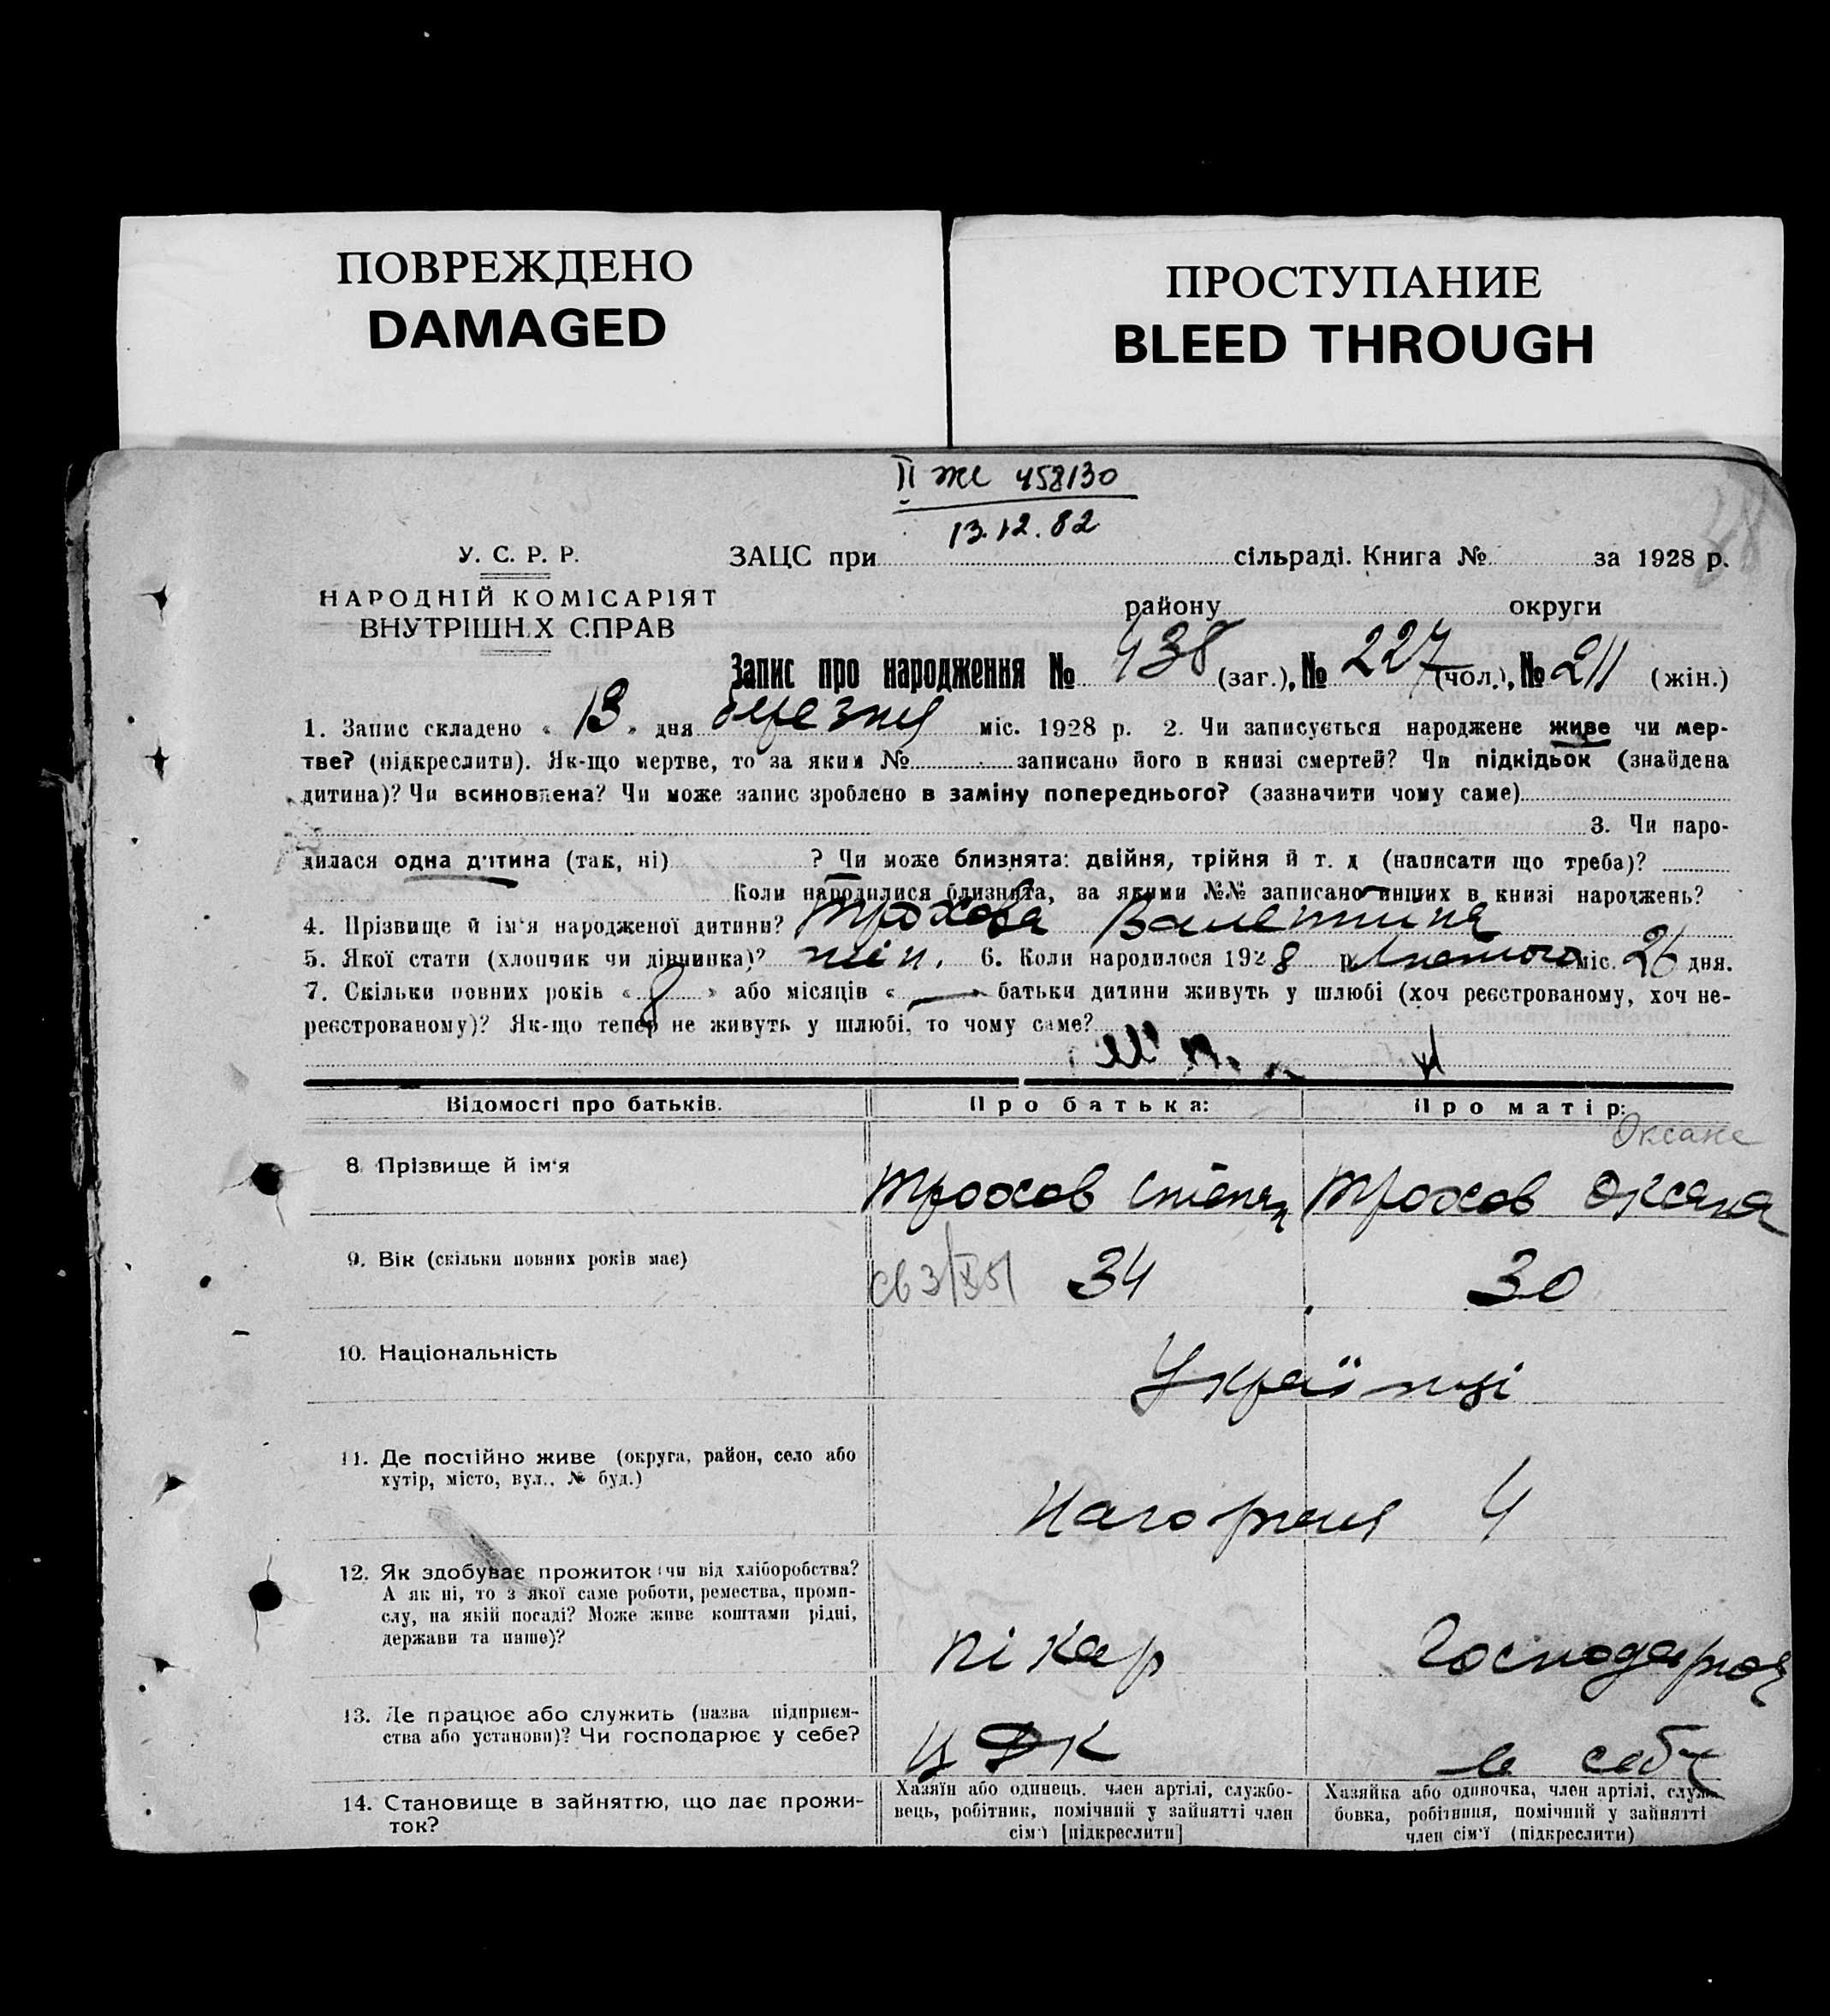 ПОВРЕЖДЕНО
DAMAGED
ПРОСТУПАНИЕ
BLEED THROUGH
II жс 458130
13.12.82
У. С. Р. Р.
ЗАЦС при сільраді. Книга № за 1928 р.
НАРОДНІЙ КОМІСАРІЯТ
ВНУТРІШНИХ СПРАВ
району округи
Запис про народження № 438 (заг.), № 227 (чол.), № 211 (жін.)
1. Запис складено « 13 » дня березня міс. 1928 р. 2. Чи записується народжене живе чи мер-
тве? (підкреслити). Як-що мертве, то за яким № записано його в книзі смертей? Чи підкідьок (знайдена
дитина)? Чи всиновлена? Чи може запис зроблено в заміну попереднього? (зазначити чому саме)
3. Чи наро-
дилася одна дитина (так, ні) ? Чи може близнята: двійня, трійня й т. д (написати що треба)?
Коли народилися близнята, за якими №№ записано инших в книзі народжень?
4. Прізвище й ім'я народженої дитини? Трохова Валентина
5. Якої статі (хлопчик чи дівчинка)? жін. 6. Коли народилося 1928 р. Лютого міс. 26 дня.
7. Скільки повних років « 8 » або місяців « — » батьки дитини живуть у шлюбі (хоч реєстрованому, хоч не-
реєстрованому)? Як-що тепер не живуть у шлюбі, то чому саме?
Відомості про батьків. Про батька: Про матір:
Оксана
8. Прізвище й ім'я Трохов Степан Трохов Оксана
9. Вік (скільки повних років має) 34 30
10. Національність Українці
11. Де постійно живе (округа, район, село або
хутір, місто, вул., № буд.)
Нагорная 4
12. Як здобуває прожиток (чи від хліборобства?
А як ні, то з якої саме роботи, ремества, проми-
слу, на якій посаді? Може живе коштами рідні,
держави та инше)?
пікар Господарює
13. Де працює або служить (назва підприєм-
ства або установи)? Чи господарює у себе?
ЦФК в себе
14. Становище в зайняттю, що дає прожи-
ток?
Хазяїн або одинець, член артілі, службо-
вець, робітник, помічний у зайнятті член
сім'ї [підкреслити]
Хазяйка або одиночка, член артілі, служ-
бовка, робітниця, помічний у зайнятті
член сім'ї (підкреслити)